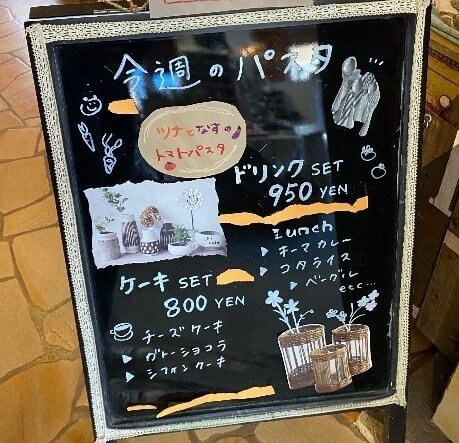 今週のパスタ
ツナとなすの
トマトパスタ
ドリンク SET
950 YEN
Lunch
▶ キーマカレー
▶ コタライス
▶ ベーグル
etc...
ケーキ SET
800 YEN
チーズケーキ
▶ ガトーショコラ
▶ シフォンケーキ